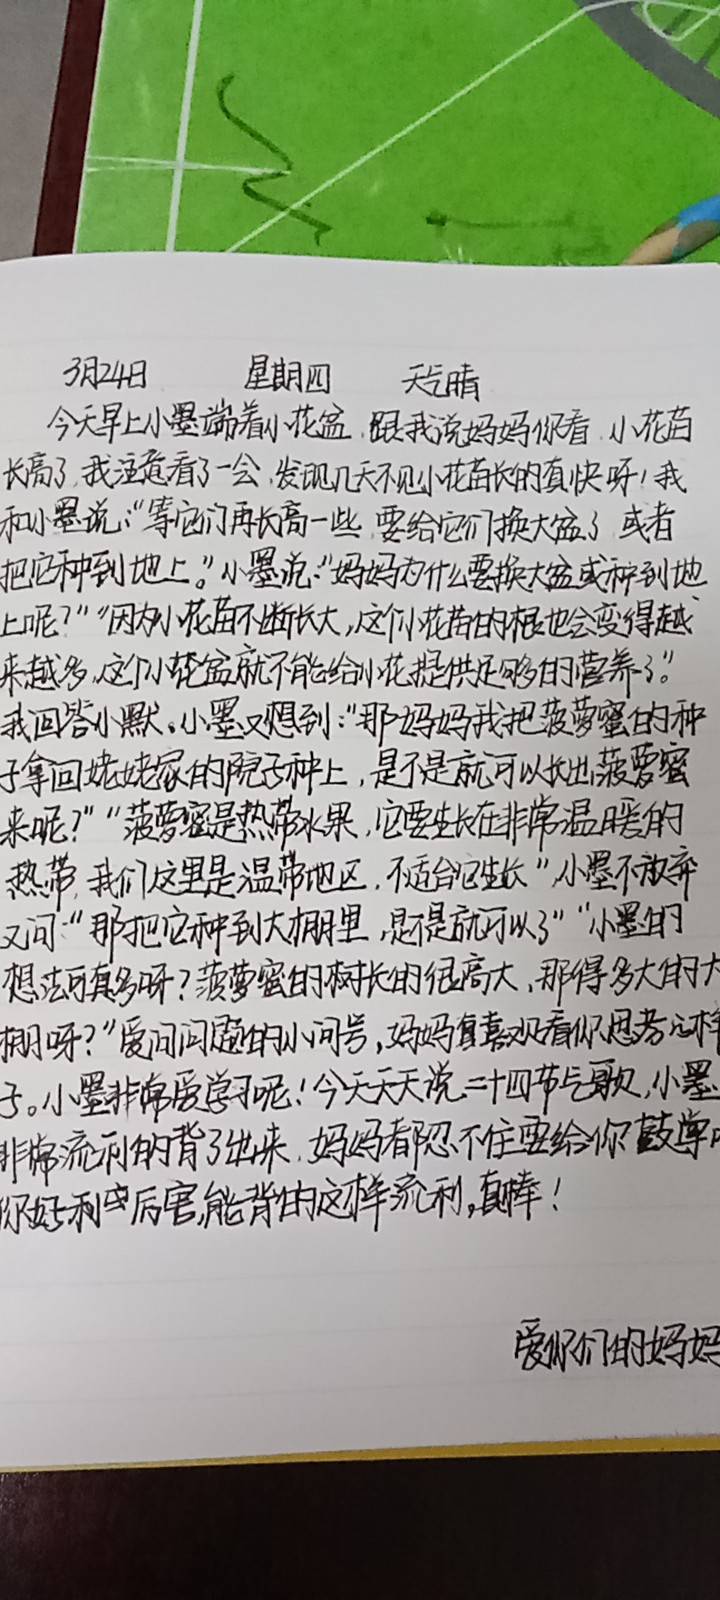 3月24日 星期四 天气晴
今天早上小墨端着小花盆,跟我说妈妈你看,小花苗
长高了,我注意看了一会,发现几天不见小花苗长的真快呀!我
和小墨说:“等它们再长高一些,要给它们换大盆了,或者
把它种到地上。”小墨说:“妈妈为什么要换大盆或种到地
上呢?”“因为小花苗不断长大,这个小花苗的根也会变得越
来越多,这个小花盆就不能给小花提供足够的营养了。”
我回答小默。小墨又想到:“那妈妈我把菠萝蜜的种
子拿回姥姥家的院子种上,是不是就可以长出菠萝蜜
来呢?”“菠萝蜜是热带水果,它要生长在非常温暖的
热带,我们这里是温带地区,不适合它生长”,小墨不放弃
又问:“那把它种到大棚里,是不是就可以了”“小墨的
想法可真多呀?菠萝蜜的树长的很高大,那得多大的大
棚呀?”爱问问题的小问号,妈妈真喜欢看你思考的样
子。小墨非常爱学习呢!今天天天说二十四节气歌,小墨
非常流利的背了出来,妈妈都忍不住要给你鼓掌
你好厉害,能背的这样流利,真棒!
爱你们的妈妈